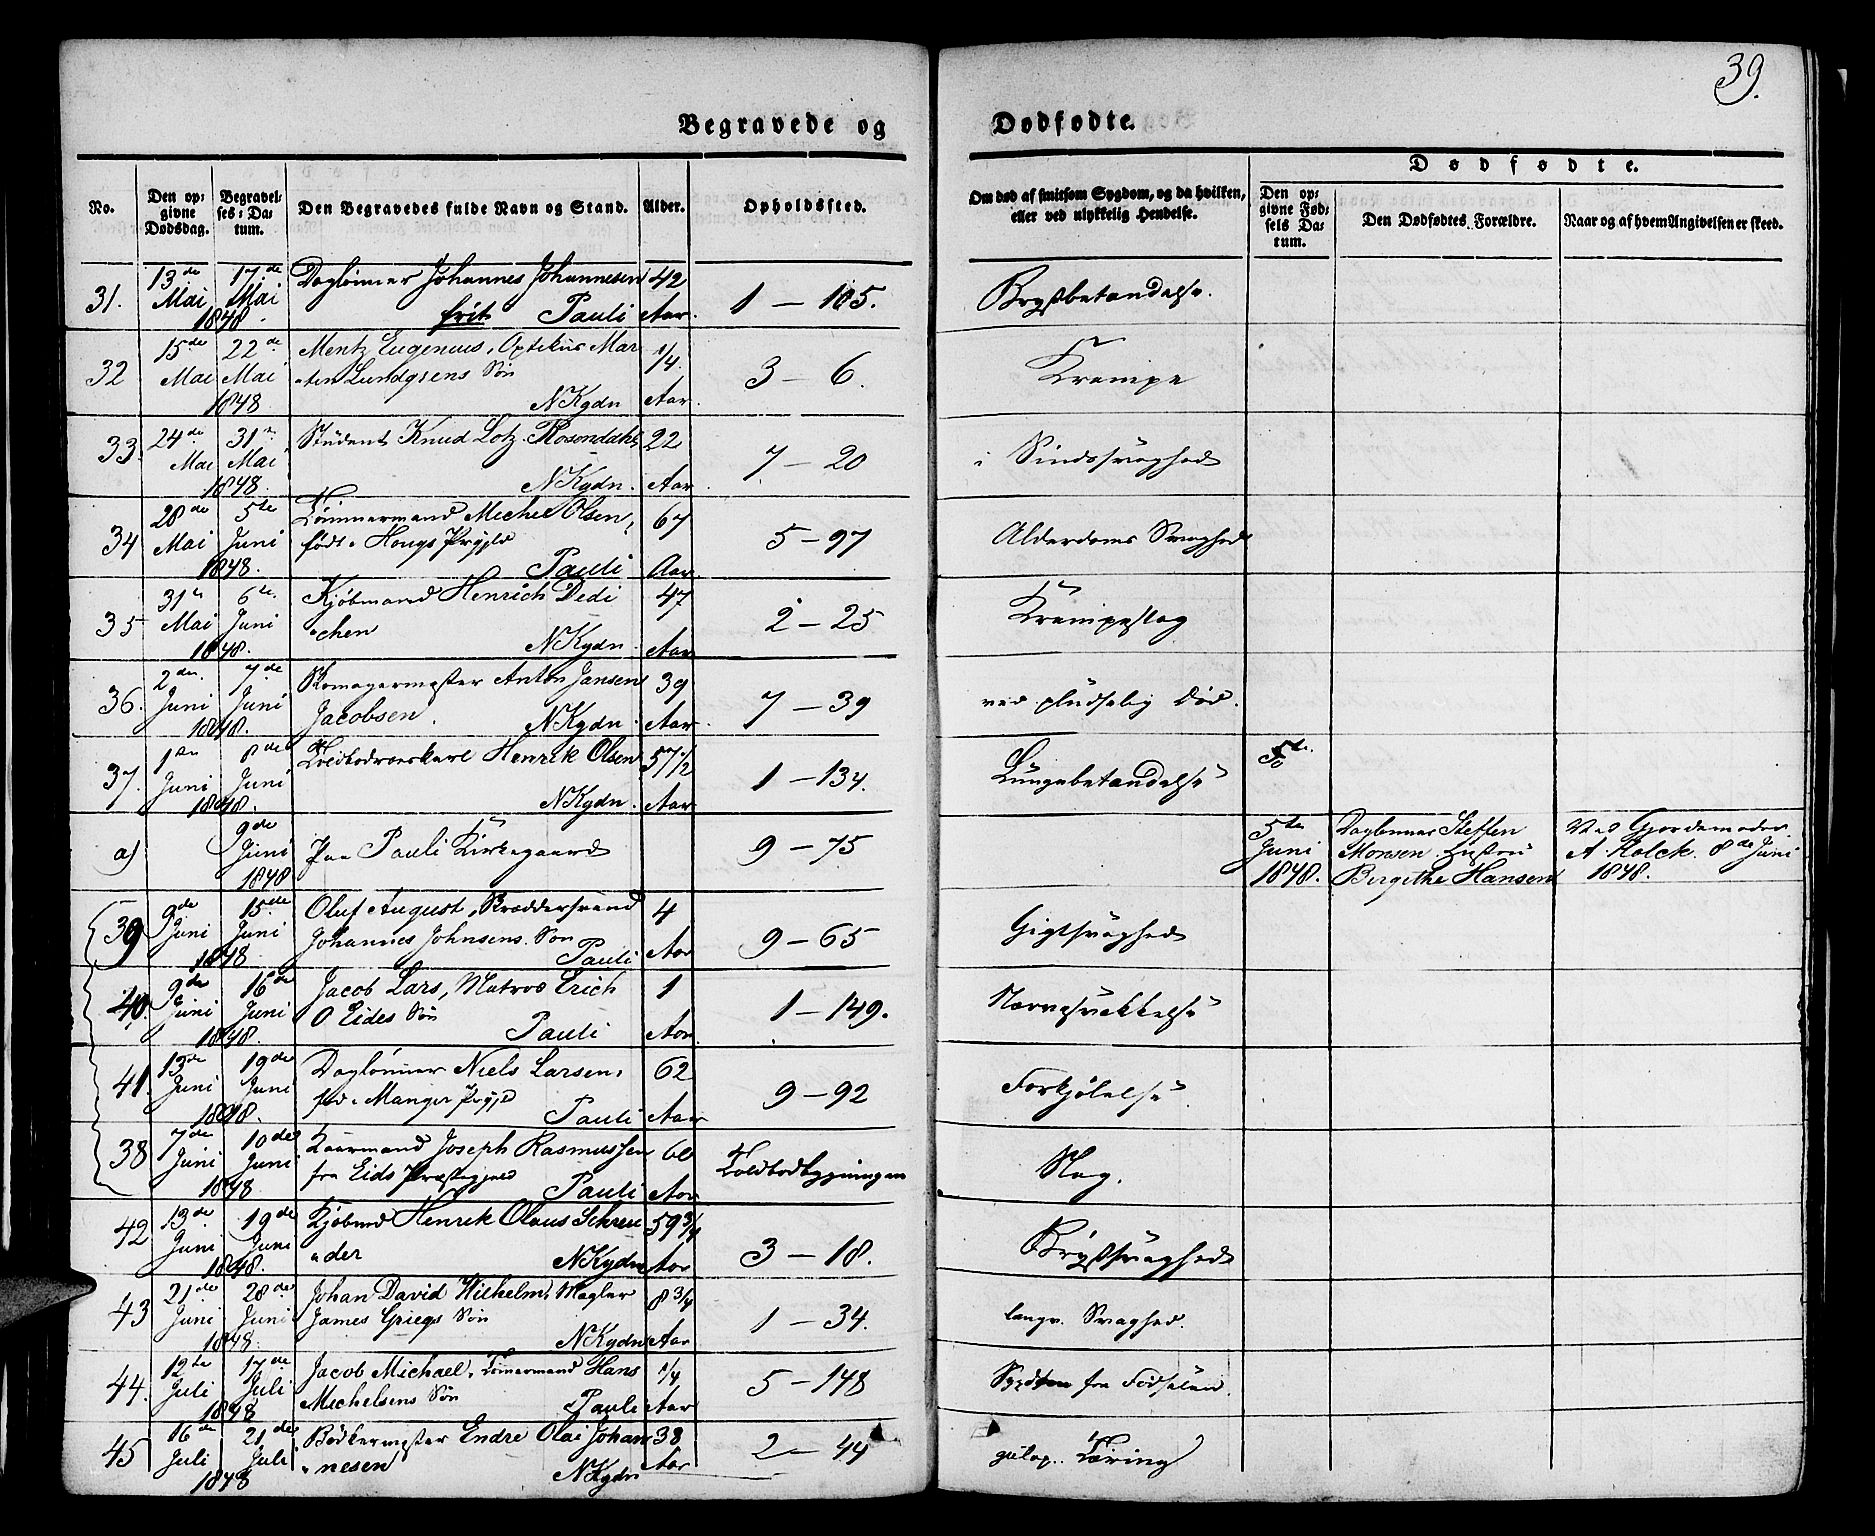 39.
Begravede og Dødfødte.
No.
Den opgivne Dødsdag.
Begravelses-Datum.
Den Begravedes fulde Navn og Stand.
Alder.
Opholdssted.
Om død af smitsom Sygdom, og da hvilken, eller ved ulykkelig Hendelse.
Dødfødte.
Den opgivne Fødsels Datum.
Den Dødfødtes Forældre.
Naar og af hvem Angivelsen er skeed.
31. 13de Mai 17de Mai 1848. Daglønner Johannes Johannesen 42 Aar. 1 – 105. Brystbetændelse.
frit Pauli
32 15de Mai 22de Mai 1848 Mentz Eugenius, Optikus Mar- 1/4 Aar. 3 – 6. Krampe
ten Lundgrens Søn
NKgdn
33. 24de Mai 31te Mai 1848. Student Knud Lotz Rosendahl, 22 Aar. 7 – 20 i Sindssvaghed
NKgdn.
34 28de Mai 5te Juni 1848. Tømmermand Michel Olsen, 67 Aar. 5 – 97 Alderdoms Svaghed
født i Hougs Prgjld
Pauli
35 31te Mai 6te Juni 1848. Kjøbmand Henrich Dedi- 47 Aar 2 – 25 Krampeslag
chen NKgdn.
36. 2den Juni 7de Juni 1848. Skomagermester Anton Jansen 39 Aar. 7 – 39 ved pludselig Død.
Jacobsen. NKgdn.
37. 1ste Juni 8de Juni 1848. Toldbodroerskarl Henrik Olsen 57 1/2 Aar. 1 – 134. Lungebetændelse 5te
NKgdn.
a) 9de Juni 1848 paa Pauli Kirkegaard 9 – 75 5te Juni 1848. Daglønner Steffen Ved Gjordemoder
Monsen Hustru A. Holck. 8de Juni
Birgithe Hansen 1848.
39 9de Juni 15de Juni 1848 Oluf August, Bræddersvend 4 Aar 9 – 65 Gigtsvaghed
Johannes Johnsens Søn
Pauli
40. 9de Juni 16de Juni 1848. Jacob Lars, Matros Erich 1 Aar. 1 – 149. Nervesvækkelse
O Eides Søn Pauli
41. 13de Juni 19de Juni 1848. Daglønner Niels Larsen, 62 Aar 9 – 92 Forkjølelse.
fød i Manger Prgjld
Pauli
38 7de Juni 10de Juni 1848 Kaarmand Joseph Rasmussen 60 Aar Toldbodbygningen Slag.
fra Eids Præstegjeld
Pauli
42 13de Juni 19de Juni 1848. Kjøbmd Henrik Olaus Schreu- 59 3/4 Aar 3 – 18. Brystsvaghed
der NKgdn
43 21de Juni 28de Juni 1848. Johan David Wilhelm, Mægler 8 3/4 Aar 1 – 34. langv. Svaghed.
James Griegs Søn
NKgdn
44. 12te Juli 17de Juli 1848 Jacob Michael, Tømermand Hans 1/4 Aar 5 – 148 fra Fødselen.
Michelsens Søn Pauli
45 16de Juli 21de Juli 1848 Bødkermester Endre Olai Johan- 38 Aar 2 – 44 galop. Tæring
nesen NKgdn